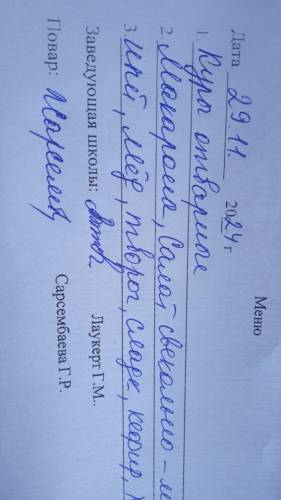 Меню
Дата 29.11. 2024 г
1. Куры отварные
2. Макароны, Салат свекольно – м
3. чай, мёд, творог, сладк, кефир,
Заведующая школы: Лаукерт Г.М..
Повар: Сарсембаева Г.Р.